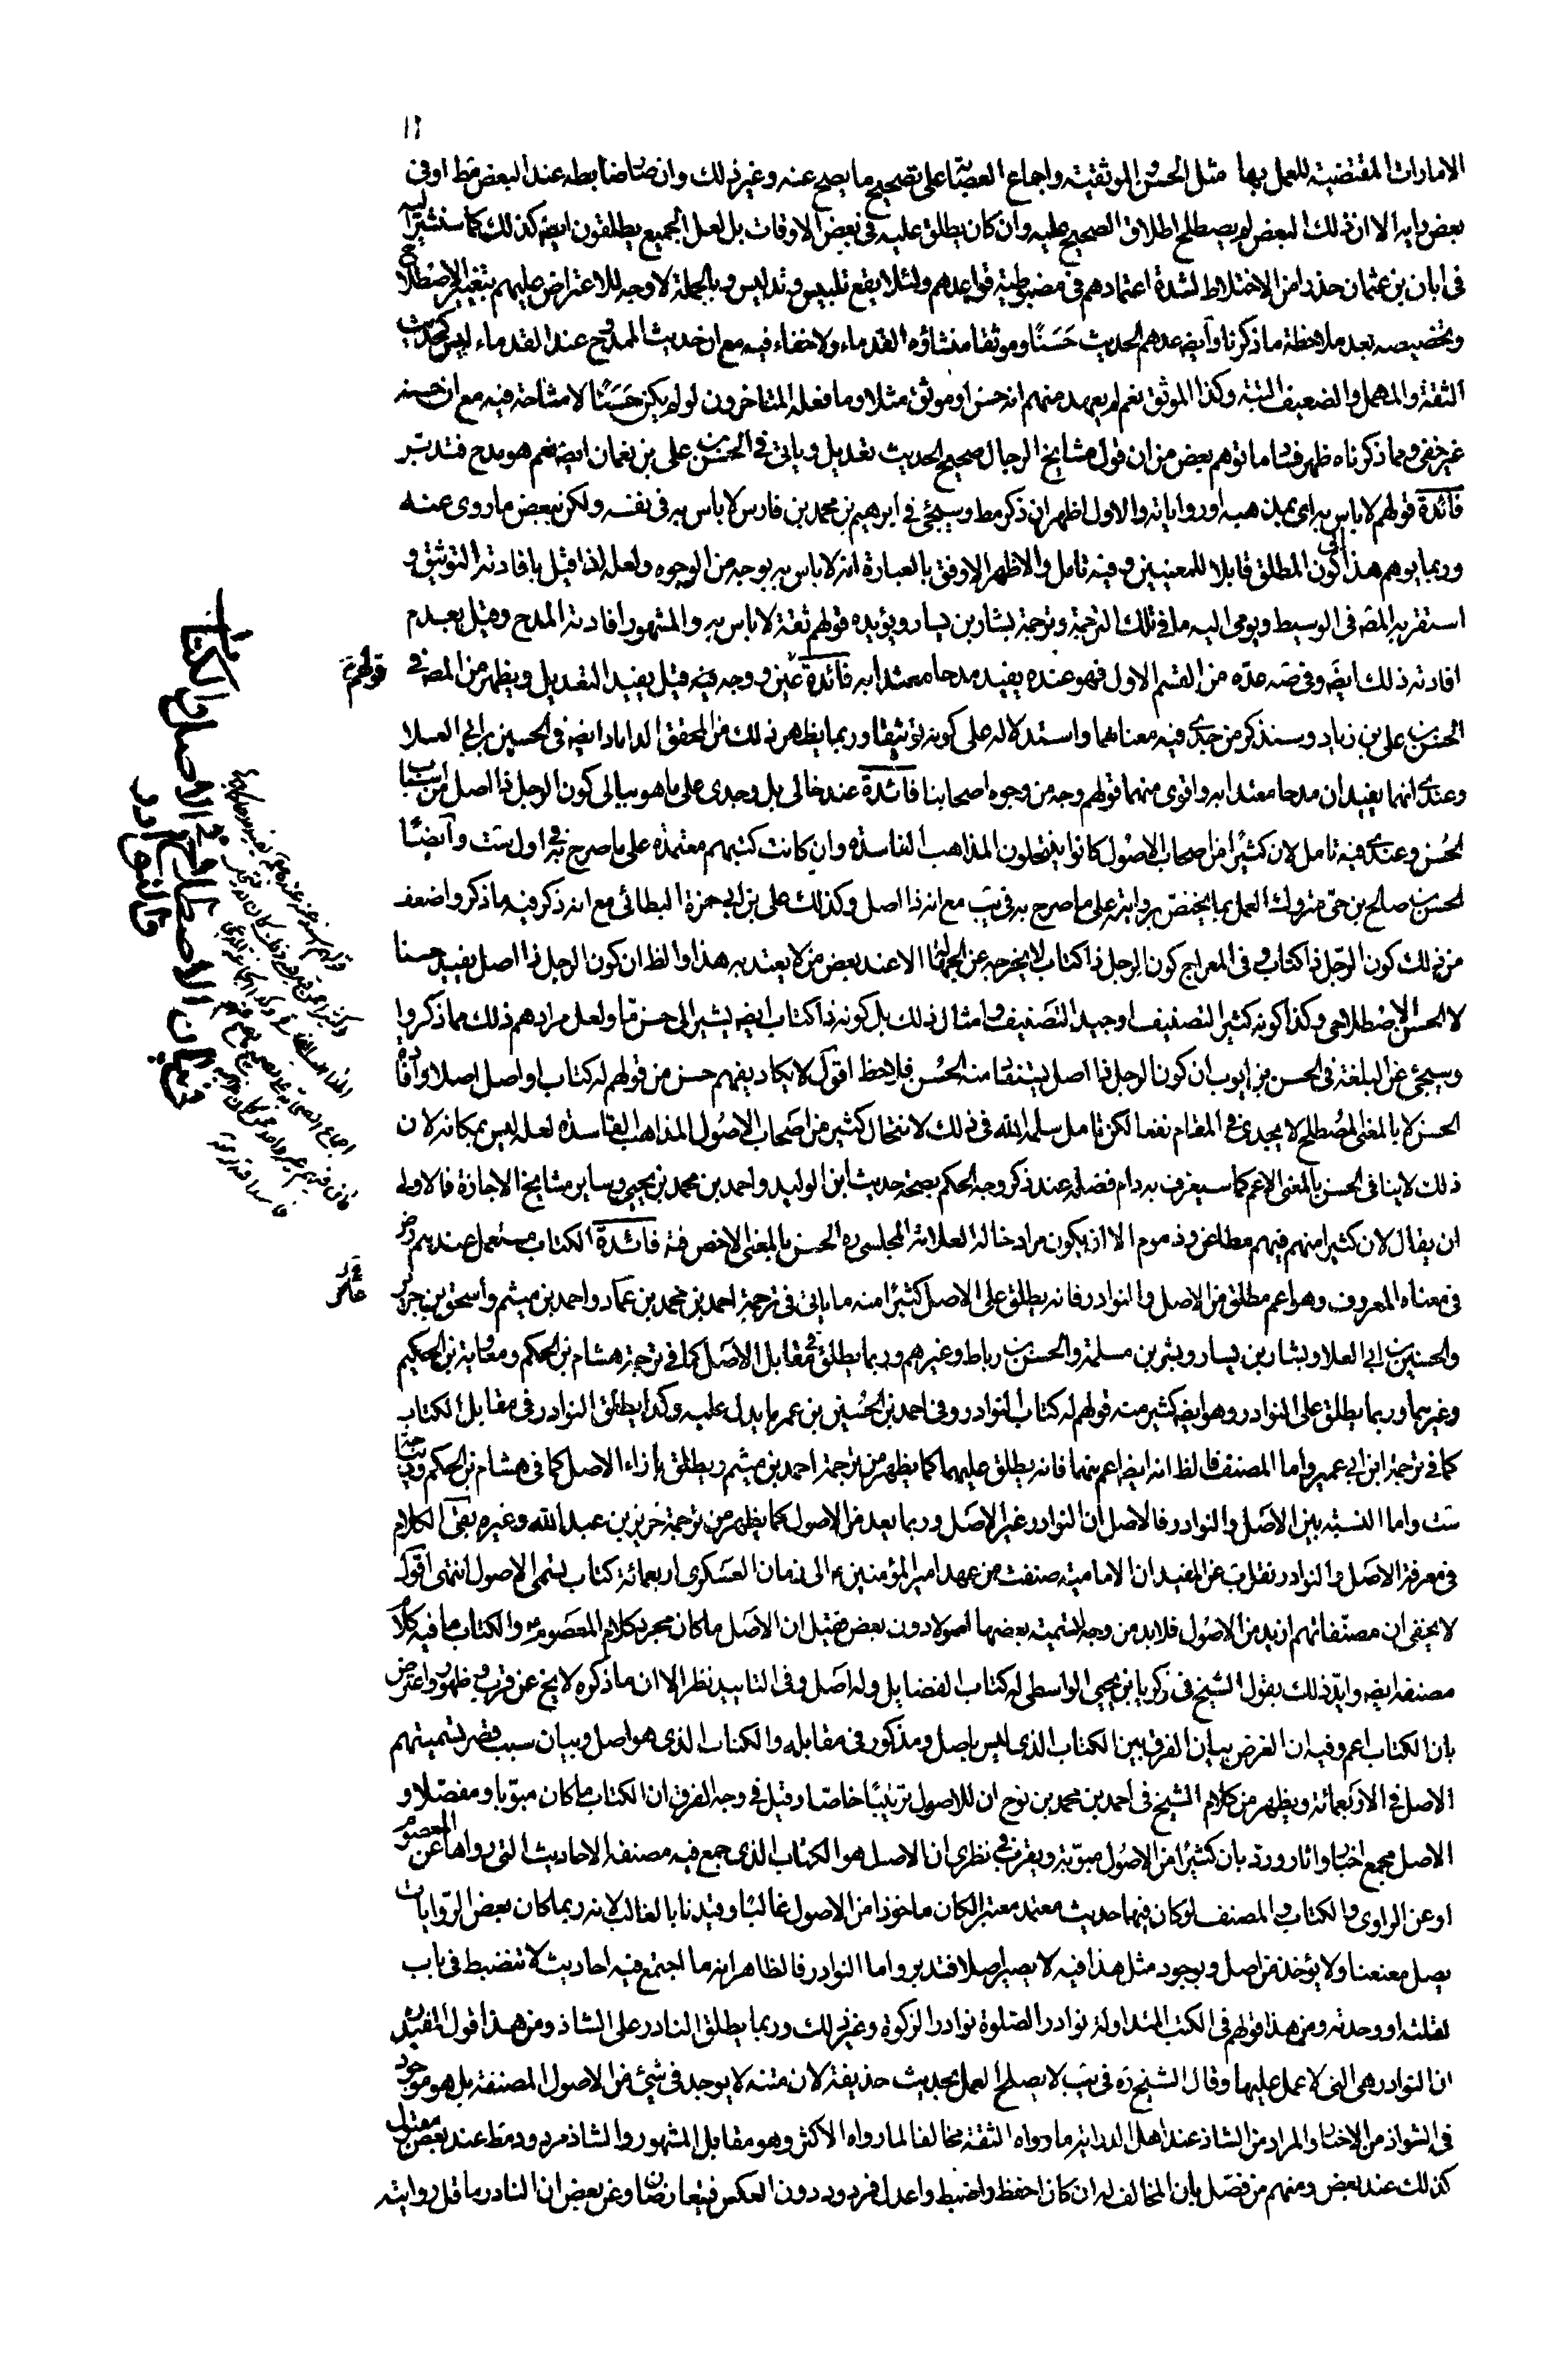 ١٢
الامارات المقتضية للعمل بها مثل الحسن والموثقية واجماع العصابة على تصحيح ما يصح عنه وغير ذلك وان صار ضابطه عند البعض مط او في
بعض رايه الا ان ذلك البعض لم يصطلح اطلاق الصحيح عليه وان كان يطلق عليه في بعض الاوقات بل لعل الجميع يطلقون ايضه كذلك كما سنشير اليه
في أبان بن عثمان حذرا من الاختلاط لشدة اعتمادهم في مضبوطية قواعدهم ولئلا يقع تلبيس وتدليس وبالجملة لا وجه للاعتراض عليهم بتغيير الاصطلاح
وتخصيصه بعد ملاحظة ما ذكرنا وأيضه عدهم الحديث حَسَنًا وموثقا منشاؤه القدماء ولا خفاء فيه مع ان حديث الممدوح عند القدماء ليس كحديث
الثقة والمهمل والضعيف البتة وكذا الموثق نعم لم يعهد منهم انه حسن او موثق مثلا وما فعله المتاخرون لو لم يكن حَسَنًا لا مشاحة فيه مع ان حسنه
غير خفي ومما ذكرناه ظهر فساد ما توهم بعض من ان قول مشايخ الرجال صحيح الحديث تعديل وياتي في الحسن بن علي بن نعمان ايضه نعم هو مدح فتدبّر
فائدة قولهم لا باس به اي بمذهبه او رواياته والاول اظهر ان ذكر مط وسيجئ في ابرهيم بن محمد بن فارس لا باس به في نفسه ولكن ببعض ما روى عنه
وربما يوهم هذا الى كون المطلق قابلا للمعنيين وفيه تامل والاظهر الاوفق بالعبارة انه لا باس به بوجه من الوجوه ولعله لذا قيل بافادته التوثيق و
استقربه المصه في الوسيط ويومي اليه ما في تلك الترجمة وترجمة بشار بن يسار ويؤيده قولهم ثقة لا باس به والمشهور افادته المدح وقيل بعدم
افادته ذلك ايضه وفي صه عدّه من القسم الاول فهو عنده يفيد مدحا معتدا به فائدة قولهم عين ووجه فيه قيل يفيد التعديل ويظهر من المصه في
الحسن بن علي بن زياد وسنذكر من جدي فيه معناهما واستدلاله على كونه توثيقا وربما يظهر ذلك من المحقق الداماد ايضه في الحسين بن ابي العلا
وعندي انهما يفيدان مدحا معتدا به واقوى منهما قولهم وجه من وجوه اصحابنا فائدة عند خالي بل وجدي على ما هو ببالي كون الرجل ذا اصل من اسباب
الحُسن وعندي فيه تامل لان كثيرًا من اصحاب الاصُول كانوا ينتحلون المذاهب الفاسدة وان كانت كتبهم معتمدة على ما صرح به في اول ست وأيضًا
الحسن بن صالح بن حيّ متروك العمل بما يختصّ بروايته على ما صرح به في يب مع انه ذا اصل وكذلك علي بن ابي حمزة البطائني مع انه ذكر فيه ما ذكر واضعف
من ذلك كون الرّجل ذا كتاب وفي المعراج كون الرجل ذا كتاب لا يخرجه عن الجهالة الا عند بعض من لا يعتد به هذا والظ ان كون الرجل ذا اصل يفيد حسنا
لا الحسن الاصطلاحي وكذا كونه كثير التصنيف او جيد التصنيف وامثال ذلك بل كونه ذا كتاب ايضه يشير الى حسن مّا ولعل مرادهم ذلك مما ذكروا
وسيجئ عن البلغة في الحسن بن ايوب ان كون الرجل ذا اصل يستفاد منه الحُسن فلاحظ اقول لا يكاد يفهم حسن من قولهم له كتاب او اصل اصلا وافادة
الحسن لا بالمعنى المُصطلح لا يجدي في المقام نفعا لكن تامل سلمه الله في ذلك لانتحال كثير من اصحاب الاصُول المذاهب الفاسدة لعله ليس بمكانه لان
ذلك لا ينافي الحسن بالمعنى الاعم كما سيعترف به دام فضله عند ذكر وجه الحكم بصحة حديث ابن الوليد واحمد بن محمد بن يحيى وساير مشايخ الاجازة فالاولى
ان يقال لان كثيرا منهم فيهم مطاعن وذموم الا ان يكون مراد خاله العلامة المجلسي ره الحسن بالمعنى الاخص فته فائدة الكتاب مستعمل عندهم رض
في معناه المعروف وهو اعم مطلق من الاصل والنوادر فانه يطلق على الاصل كثيرًا منه ما ياتي في ترجمة احمد بن محمد بن عمار واحمد بن ميثم وأسحق بن جرير
والحسين بن ابي العلا وبشار بن يسار وبشر بن مسلمة والحسن بن رباط وغيرهم وربما يطلق في مقابل الاصَل كما في ترجمة هشام بن الحكم ومعاوية بن الحكيم
وغيرهما وربما يطلق على النوادر وهو ايضه كثير منه قولهم له كتاب النوادر وفي احمد بن الحُسين بن عمر ما يدل عليه وكذا يطلق النوادر في مقابل الكتاب
كما في ترجمة ابن ابي عمير واما المصنف فالظ انه ايضه اعم منهما فانه يطلق عليهما كما يظهر من ترجمة احمد بن ميثم ويطلق بأزاء الاصل كما في هشام بن الحكم وديباجة
ست واما النسبة بين الاصَل والنوادر فالاصل ان النوادر غير الاصَل وربما يعد من الاصول كما يظهر من ترجمة حريز بن عبد الله وغيره بقى الكلام
في معرفة الاصَل والنوادر نقل ب عن المفيد ان الامامية صنفت من عهد امير المؤمنين ع الى زمان العسَكري اربعمائة كتاب يسمى الاصول انتهى اقول
لا يخفى ان مصنّفاتهم ازيد من الاصُول فلا بد من وجه لتسمية بعضها اصولا دون بعض فقيل ان الاصَل ما كان مجرد كلام المعصَوم ع والكتاب ما فيه كلام
مصنفه ايضه وايّد ذلك بقول الشيخ في زكريا بن يحيى الواسطي له كتاب الفضايل وله اصَل وفي التاييد نظر الا ان ما ذكره لا يخ عن قرب وظهور واعترض
بان الكتاب اعم وفيه ان الغرض بيان الفرق بين الكتاب الذي ليس باصل ومذكور في مقابله والكتاب الذي هو اصل وبيان سبب قصر تسميتهم
الاصل في الاربَعمائة ويظهر من كلام الشيخ في أحمد بن محمد بن نوح ان للاصول ترتيبًا خاصّا وقيل في وجه الفرق ان الكتاب ما كان مبوّبا ومفصّلا و
الاصل مجمع اخبار واثار ورد بان كثيرًا من الاصُول مبوّبة ويقرب في نظري ان الاصل هو الكتاب الذي جمع فيه مصنفه الاحاديث التي رواها عن المعصوم
او عن الراوي والكتاب والمصنف لو كان فيهما حديث معتمد معتبر لكان ماخوذا من الاصول غالبًا وقيدنا بالغالب لانه ربما كان بعض الرّوايات
يصل معنعنا ولا يؤخذ من اصل وبوجود مثل هذا فيه لا يصير اصلا فتدبر واما النوادر فالظاهر انه ما اجتمع فيه احاديث لا تنضبط في باب
لقلته او وحدته ومن هذا قولهم في الكتب المتداولة نوادر الصّلوة نوادر الزكوة وغير ذلك وربما يطلق النادر على الشاذ ومن هذا قول المفيد ره
ان النوادر هي التي لا عمل عليها وقال الشيخ ره في يب لا يصلح العمل بحديث حذيفة لان متنه لا يوجد في شئ من الاصول المصنفة بل هو موجود
في الشواذ من الاخبار والمراد من الشاذ عند اهل الدراية ما رواه الثقة مخالفا لما رواه الاكثر وهو مقابل المشهور والشاذ مردود مط عند بعض مقبول
كذلك عند بعض ومنهم من فصّل بان المخالف له ان كان احفظ واضبط واعدل فمردود دون العكس فيتعارضان وعن بعض ان النادر ما قل روايته
قولهم
في بيان الاصطلاح في الاصل والكتاب
والنوادر